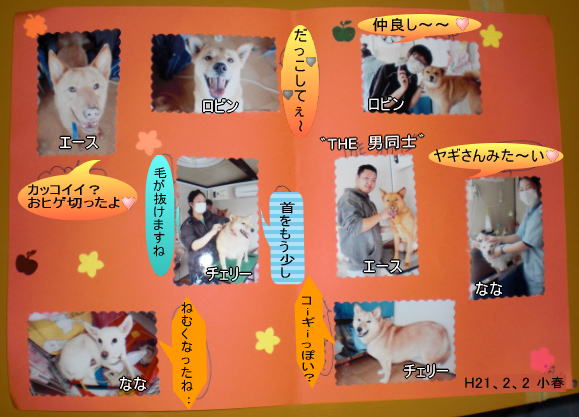 エース
ロビン
だっこしてぇ～
仲良し～～
ロビン
カッコイイ?
おヒゲ切ったよ
毛が抜けますね
チェリー
首をもう少し
"THE 男同士"
エース
ヤギさんみた～い
なな
なな
ねむくなったね：
コーギーっぽい?
チェリー
H21、2、2 小春